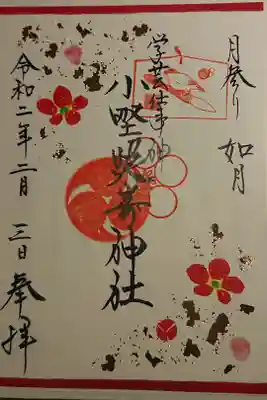 月参り 如月
学芸仕事の神
小野照崎神社
令和二年二月 三日 奉拝